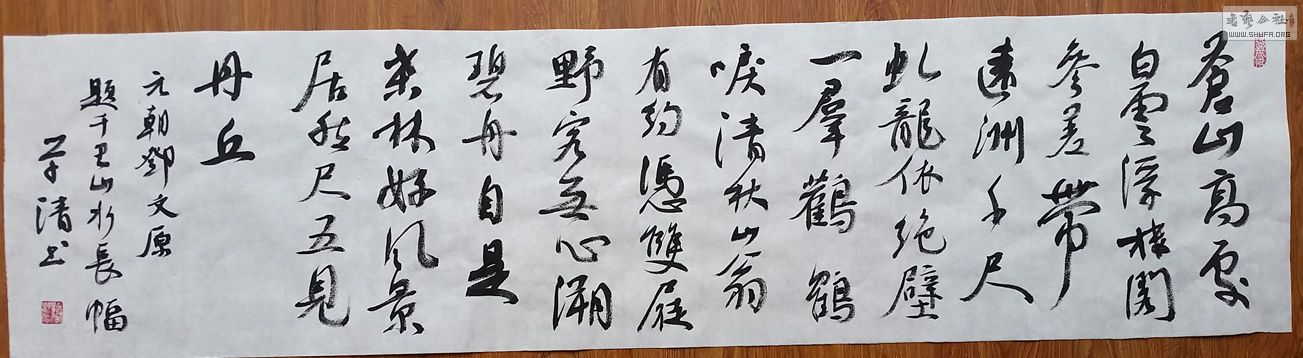 蒼山高處
白雲浮樓閣
參差帶
遠洲千尺
虬龍依絕壁
一羣鸛鶴
唳清秋山翁
有約憑雙屐
野客無心溯
碧丹自是
桼林好風景
居然尺五見
丹丘
元朝鄧文原
題千里山水長幅
学清书
書藝公社
WWW.SHUFA.ORG